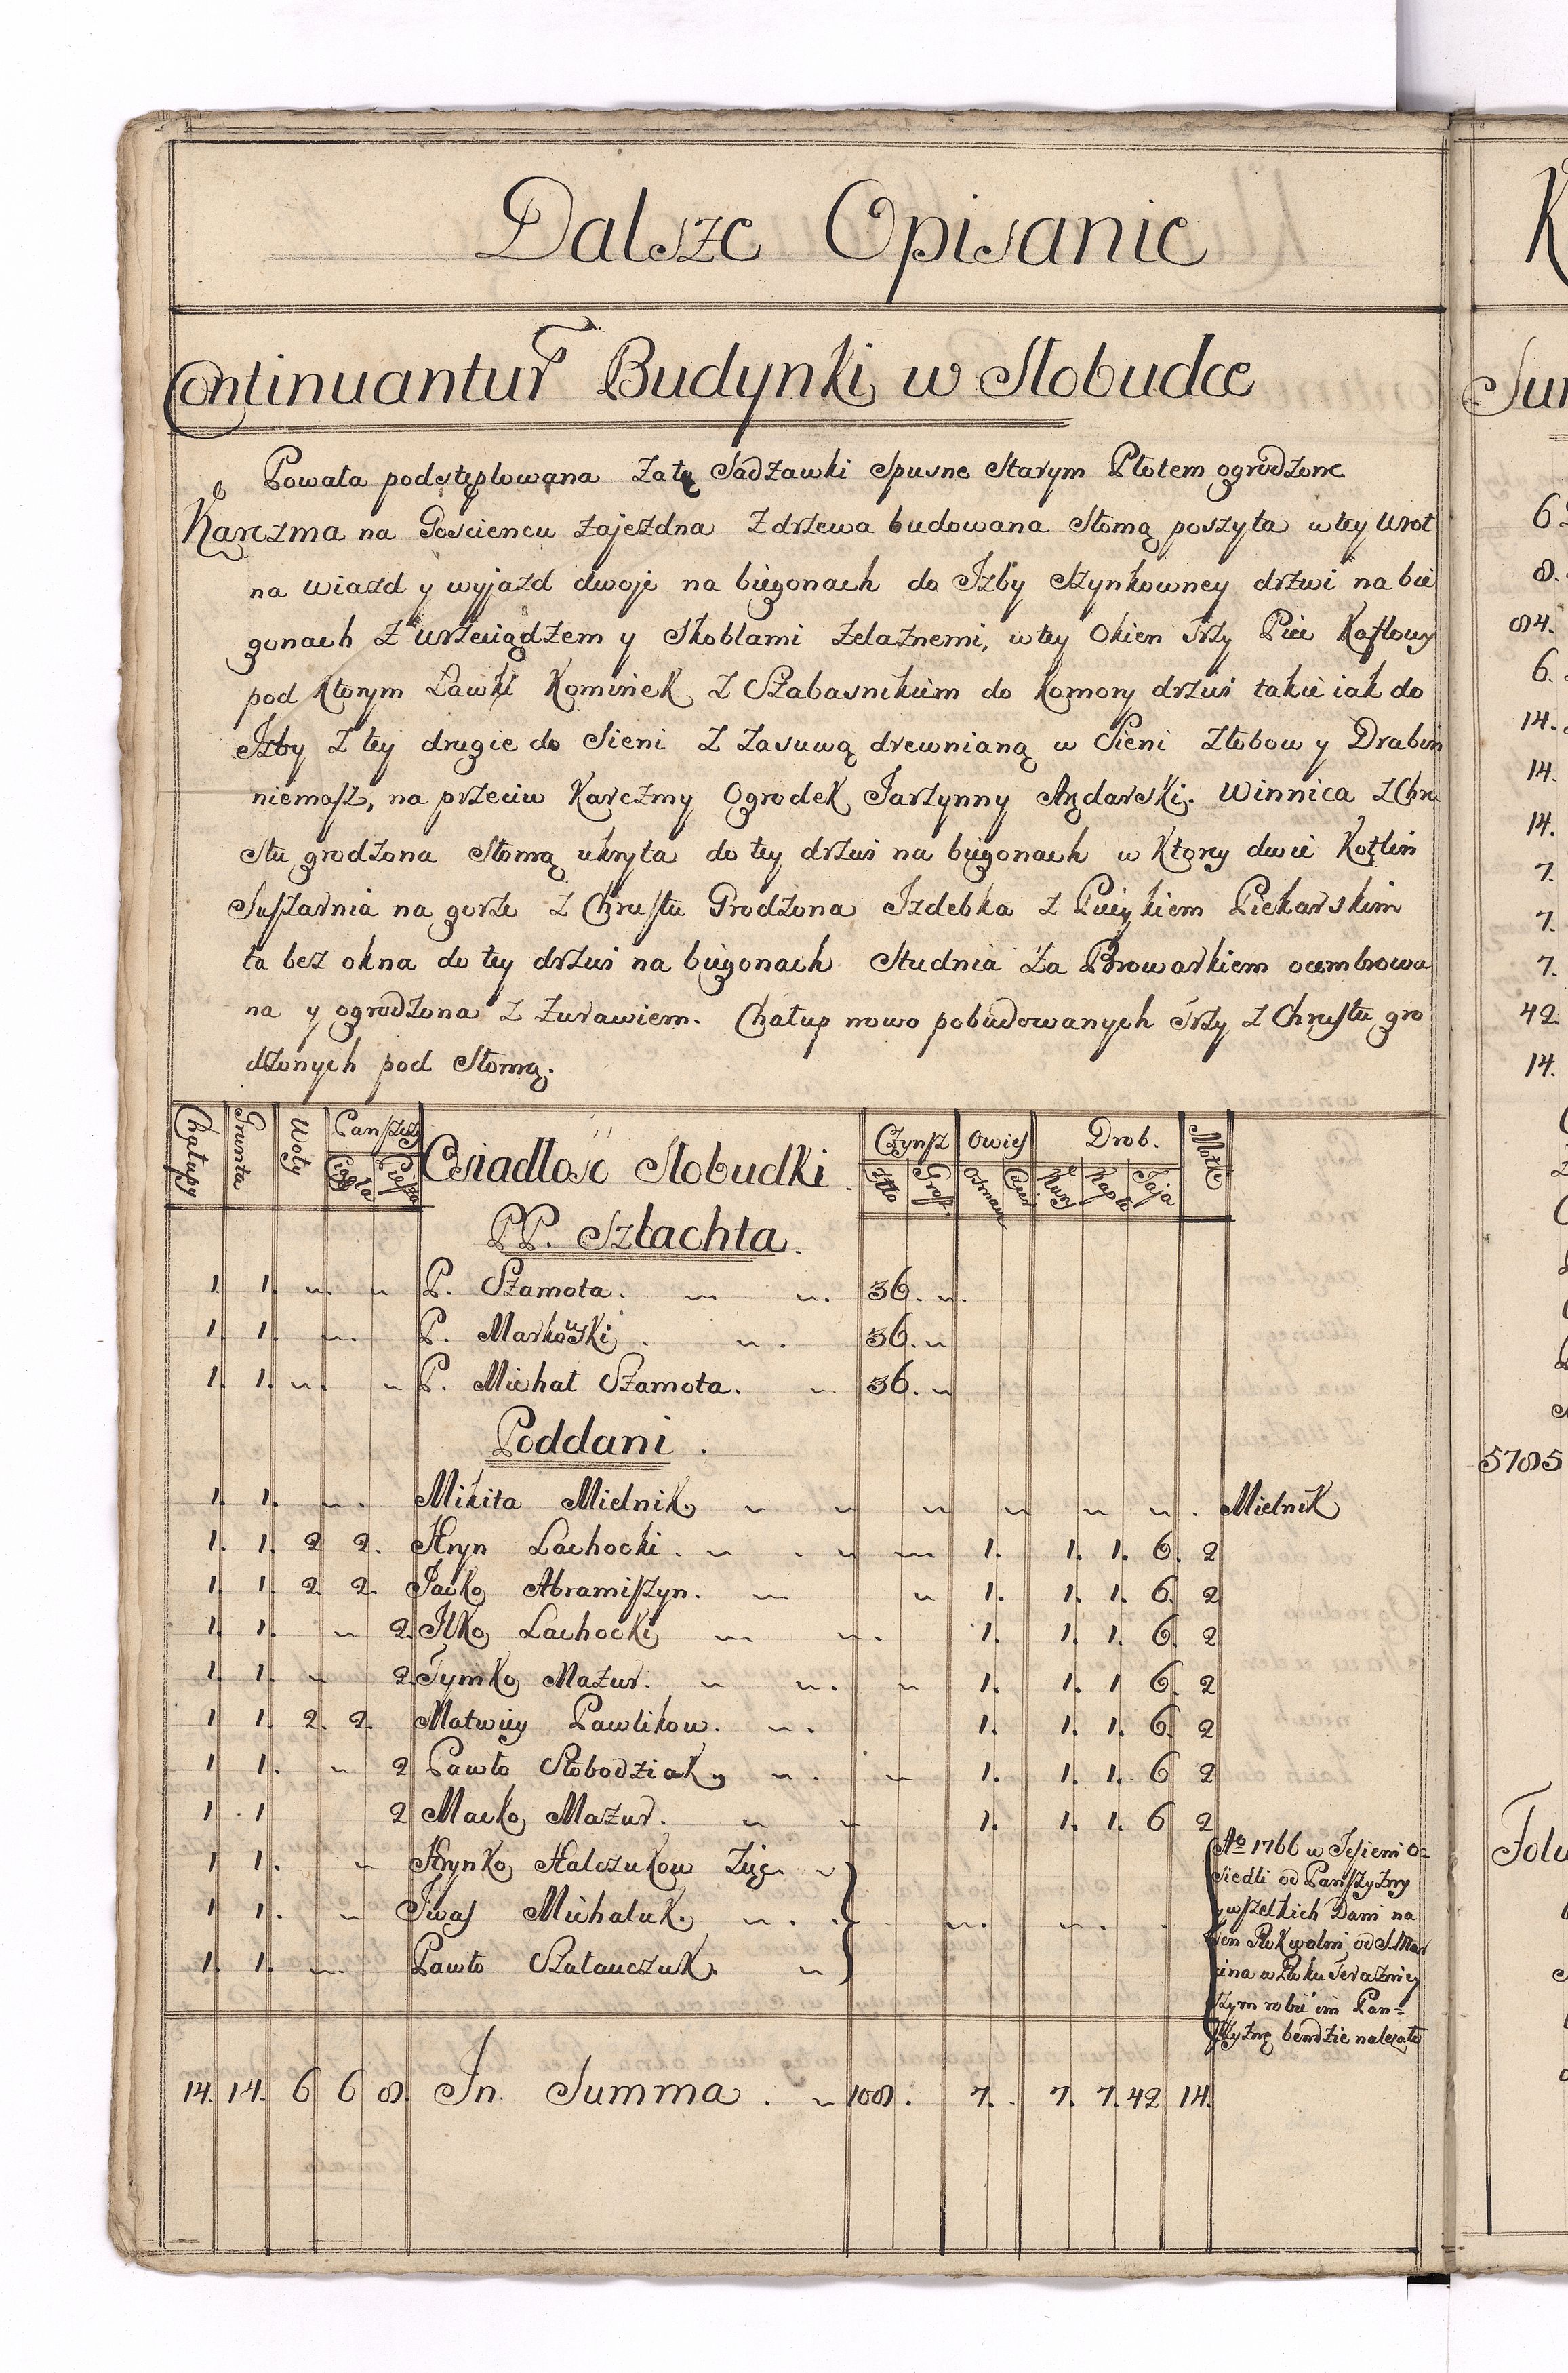 Dalsze Opisanie
Continuantur Budynki w Slobudce
Powała podstęplowana za tą Sadzawki spusne Starym Płotem ogrodzone
Karczma na Gosciencu zajezdna z drzewa budowana Słomą poszyta w tey Wrot
na Wiazd y wyjazd dwoje na biegonach do Izby Szynkowney drzwi na bie
gonach z wrzeciądzem y Skoblami zelaznemi, w tey Okien trzy Piec Kaflowy
pod ktorym Ławki Kominek z Szabasnikiem do Komory drzwi takie iak do
Izby z tey drugie do Sieni z zasuwą drewnianą w Sieni Złobow y Drabin
niemasz, na przeciw Karczmy Ogrodek Jarzynny Arędarski. Winnica z Chru
stu grodzona Słomą ukryta do tey drzwi na biegonach w Ktorey dwie Kotlin
Suszarnia na gorze z Chrustu Grodzona Izdebka z Piecykiem Piekarskim
ta bez okna do tey drzwi na biegonach Studnia za Browarkiem ocembrowa
na y ogrodzona z Zurawiem. Chałup nowo pobudowanych trzy z Chrustu gro
dzonych pod Słomą.
Chałupy Grunta Woły Panszczy Osiadłosc Slobudki Czynsz Owies Drob. Motki
Ciągła Piesza Złto Grosz Osmak Kury Kapło Jaja
PP. Szlachta.
1. 1. P. Szamota. 36.
1. 1. P. Markowski. 36.
1. 1. P. Michał Szamota. 36.
Poddani.
1. 1. Mikita Mielnik. Mielnik
1. 1. 2 2. Hryn Lachocki. 1. 1. 1. 6. 2
1. 1. 2 2. Jacko Abramiszyn. 1. 1. 1. 6. 2
1. 1. 2 Ilko Lachocki 1. 1. 1. 6. 2
1. 1. 2 Tymko Mazur. 1. 1. 1 6. 2
1 1. 2. 2. Matwiey Pawlikow. 1. 1. 1. 6. 2
1 1. 2 Pawło Słobodziak. 1. 1. 1. 6 2
1 1 2 Macko Mazur. 1. 1. 1. 6 2
1 1. Hrynko Halczukow Zięc
1 1. Iwas Michaluk.
1. 1. Pawło Szatauczuk.
Ao 1766 w Jesieni o=
siedli od Panszczyzny
y wszelkich Dani na
ten Rok wolni, od S. Mar
cina w Roku Terazniey
szym robic im Pan=
szczyznę bendzie nalezało
14. 14. 6 6 8. In Summa. 108. 7. 7. 7. 42 14.
6
8.
84.
6.
14.
14.
14.
7.
7.
7.
42
14.
5785